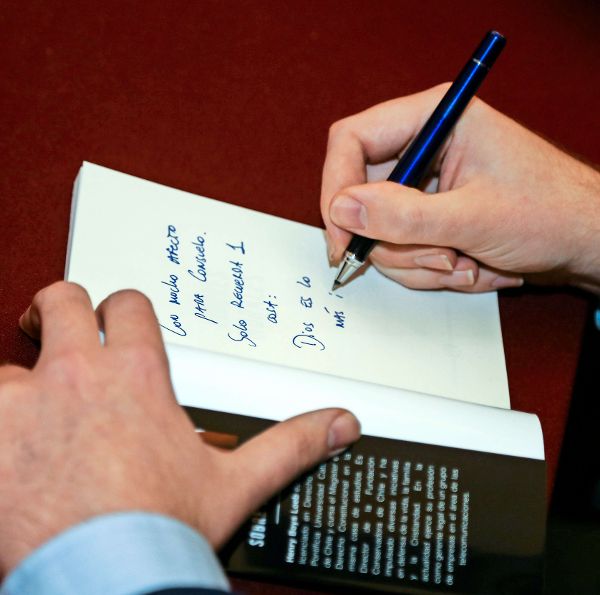 Con MUCHO AFECTO
PARA CONSUELO.
SOLO RECUERDA 1
COSA:
DIOS ES LO
MÁS i
SOBR
Henry Boys Loeb es
licenciado en Derecho
Pontificia Universidad Cató
de Chile y cursa el Magíster e
Derecho Constitucional en la
misma casa de estudios. Es
Director de la Fundación
Conservadora de Chile y ha
impulsado diversas iniciativas
en defensa de la vida, la familia
y la Cristiandad. En la
actualidad ejerce su profesión
como gerente legal de un grupo
de empresas en el área de las
telecomunicaciones.